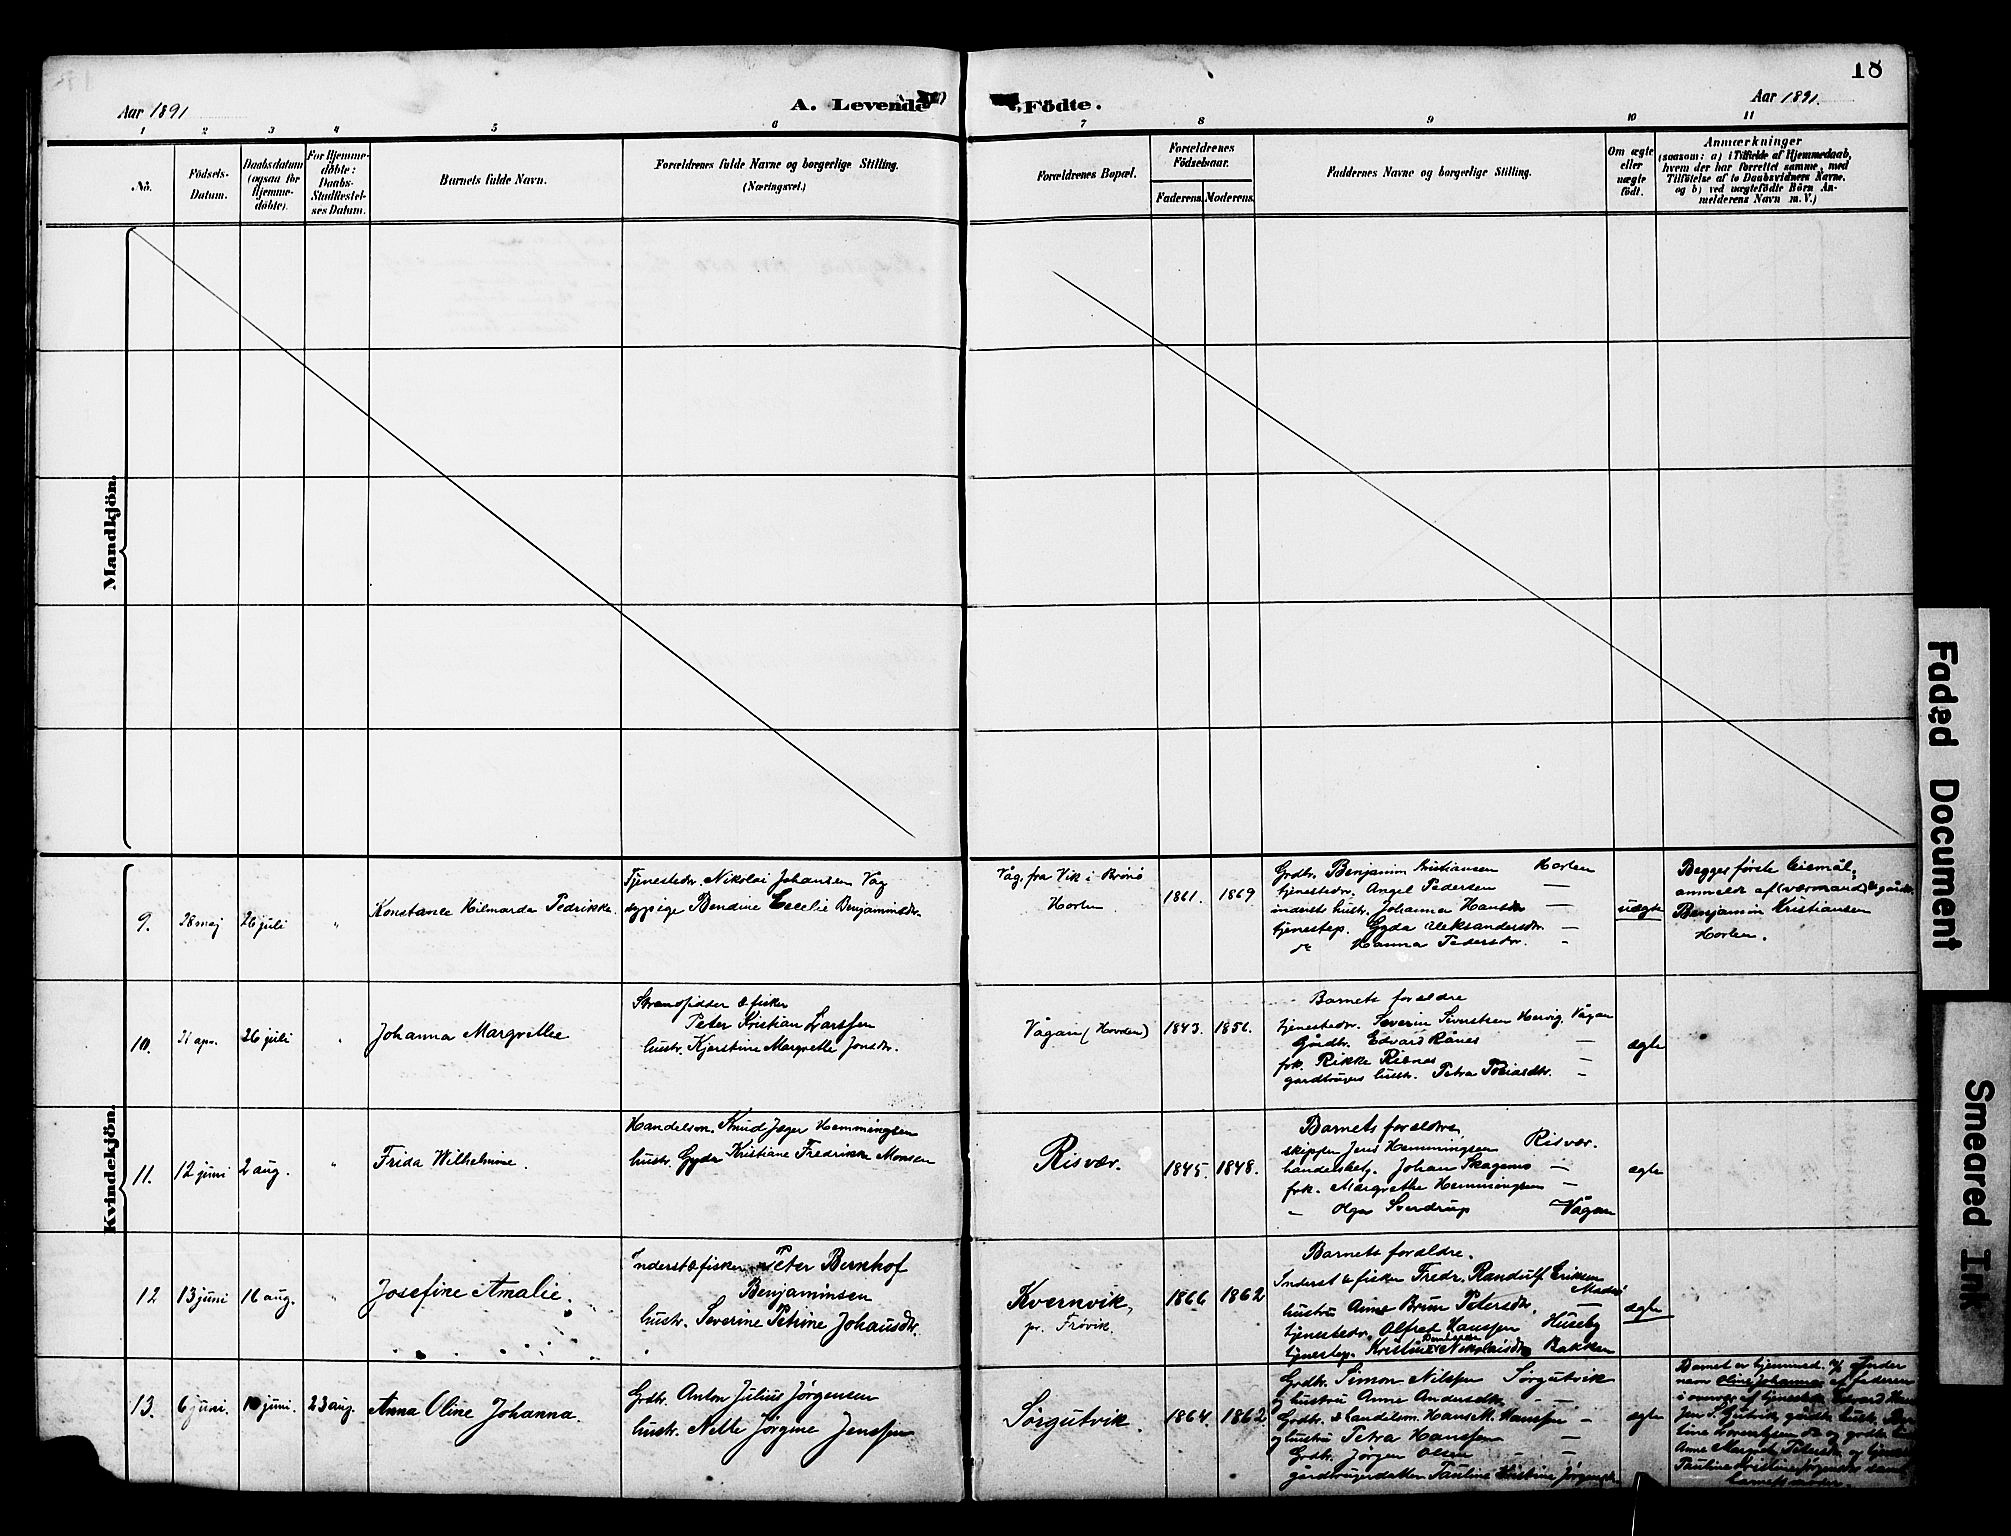 18
Aar 1891
A. Levende Födte.
Aar 1891.
1 2 3 4 5 6 7 8 9 10 11
No.
Fødsels-
Datum.
Daabsdatum
(ogsaa for
Hjemme-
døbte).
For Hjemme-
døbte:
Daabs-
Stadfæstel-
ses Datum.
Barnets fulde Navn.
Forældrenes fulde Navne og borgerlige Stilling.
(Næringsvei.)
Forældrenes Bopæl.
Forældrenes
Födselsaar.
Faderens. Moderens.
Faddernes Navne og borgerlige Stilling.
Om ægte
eller
uægte
født.
Anmærkninger
(saasom: a) i Tilfælde af Hjemmedaab,
hvem der har forrettet samme, med
Tilföielse af to Daabsvidners Navne,
og b) ved uægtefödte Börn An-
melderens Navn m. V.)
Mandkjön.
Kvindekjön.
9.
28 maj
26 juli
"
Konstance Hilmarda Pedrikke
Tjenestedr. Nikolai Johansen Våg
pige Bendine Cecelie Benjaminsdr.
Våg, fra Vik i Brönö
Horten
1861. 1869
Grdbr. Benjamin Kristiansen Horten
tjenestedr. Angel Pedersen —
inderste hustr. Johanna Hansdr —
tjenestep. Gyda Aleksandersdtr. —
do Hanna Pedersdr. -
uægte
Begges første leiemål,
anmeldt af
Benjamin Kristiansen
Horten.
10.
21 apr.
26 juli
Johanna Margrethe
Strandsidder & fisker
Peter Kristian Larssen
hustr. Kjerstine Margrethe Jonsdr.
Vågan (Horten)
1843. 1856.
Barnets forældre
tjenestedr. Severin Sivertsen Hervig, Vågan
Gårdbr. Edvard Rånes —
frk. Rikke Risnes —
gardbrugers hustr. Petra Tobiasdtr. -
ægte
11.
12 juni
2 aug.
"
Frida Wilhelmine.
Handelsm. Knud Jæger Hemmingsen
hustr. Gyda Kristiane Fredrikke Monsen
Risvær.
1845. 1848.
Barnets forældre,
skipper Jens Hemmingsen Risvær.
handelsbetj. Johan Skagemo —
frk. Margrethe Hemmingsen —
" Olga Sverdrup Vågan
ægte
12
13 juni
16 aug.
"
Josefine Amalie.
Inderst & fisker Peter Bernhof
Benjaminsen
hustr. Severine Petrine Johansdtr.
Kvernvik,
pr. Frövik.
1866 1862
Barnets forældre.
Inderst & fisker Fredr. Randulf Eriksen
hustru Anne Brun Petersdtr.
tjenestedr. Olfred Hanssen Huseby
tjenestep. Kristine Nikolaisdtr. Bakken
ægte
13.
6 juni.
10 juni.
23 aug.
Anna Oline Johanna.
Grdbr. Anton Julius Jørgensen
hustr. Nelle Jørgine Jenssen
Sørgutvik.
1864. 1862
Grdbr. Simon Nilssen Sørgutvik
og hustru Anne Andersdtr. —
Grdbr. & landhdlm. Hans M. Hanssen -
og hustru Petra Hanssen —
Grdb. Jørgen Olsen —
gårdbrugerdatter Pauline Kristine Jørgensdtr
ægte
Barnet er hjemmed. 10/6 under
navn Oline Johanna af faderen
Anne Margrete Petersdtr og
Pauline Kristine Jørgensdtr samt
barnets moder.
Faded Document
Smeared Ink